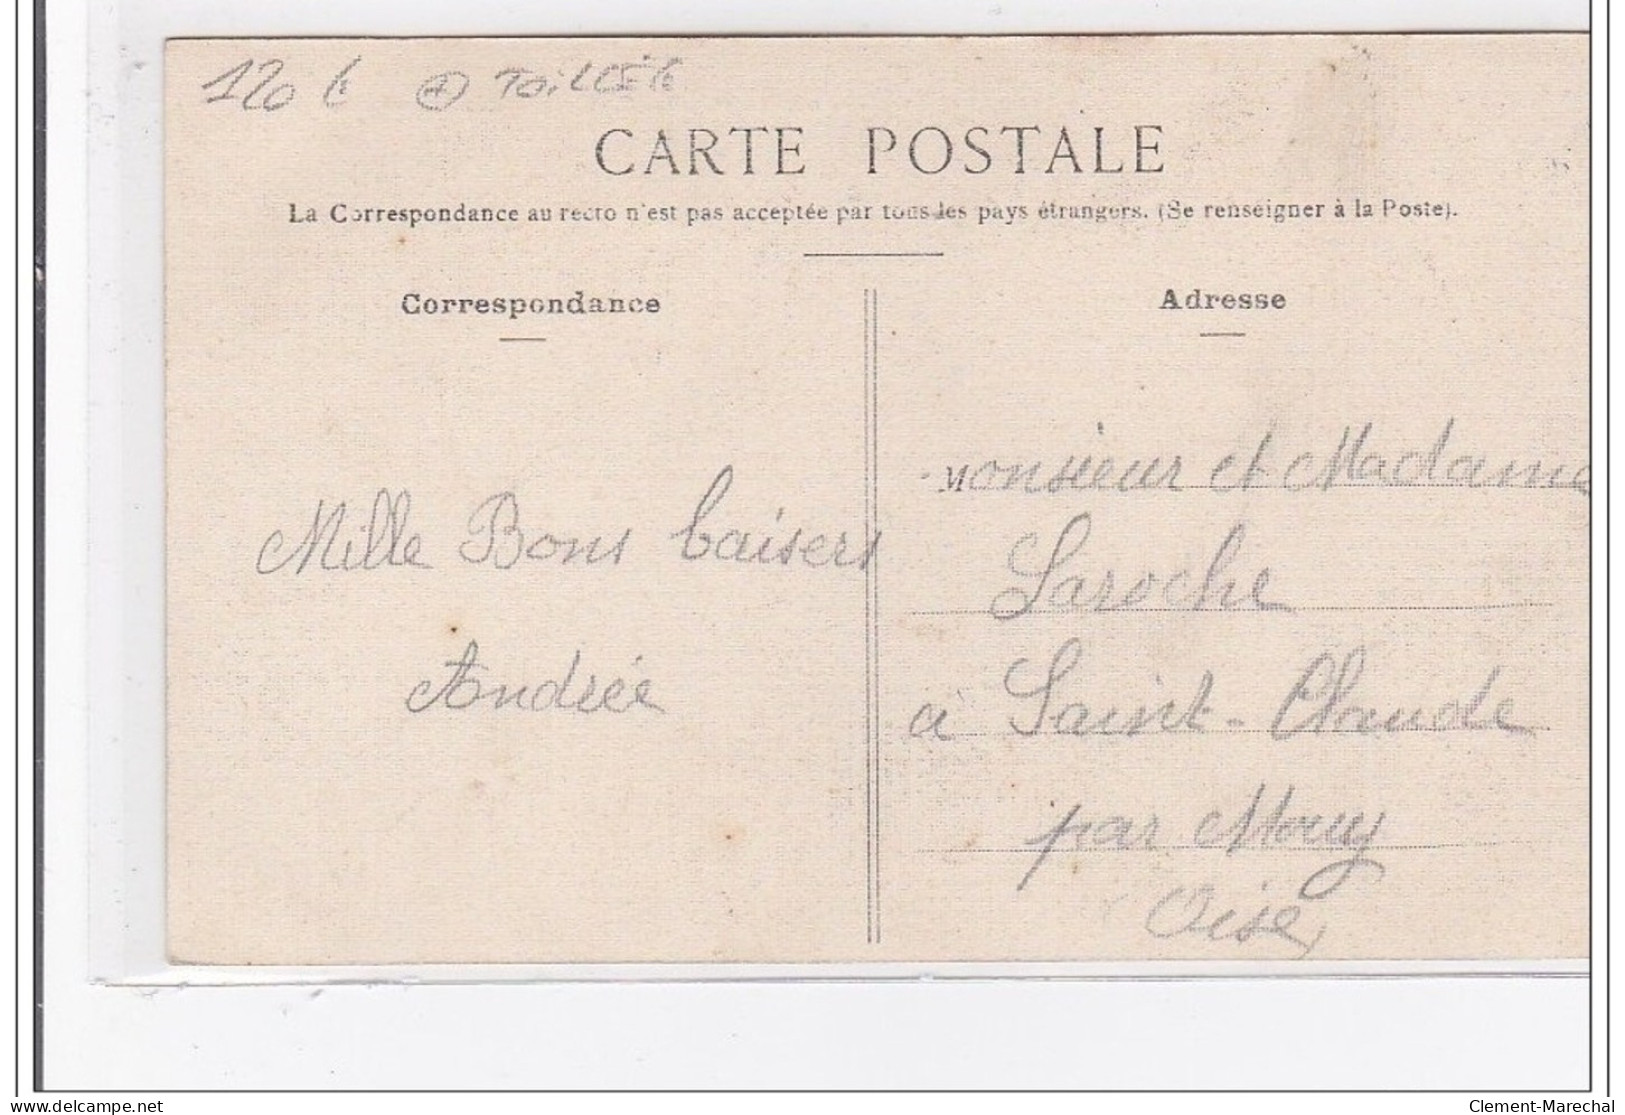 120 € TOiLÉE
CARTE POSTALE
La Correspondance au recto n'est pas acceptée par tous les pays étrangers. (Se renseigner à la Poste).
Correspondance
Adresse
Mille Bons baisers
Andrée
Monsieur et Madame
Laroche
à Saint-Claude
par Mouy
Oise
delcampe.net
Clement-Marechal